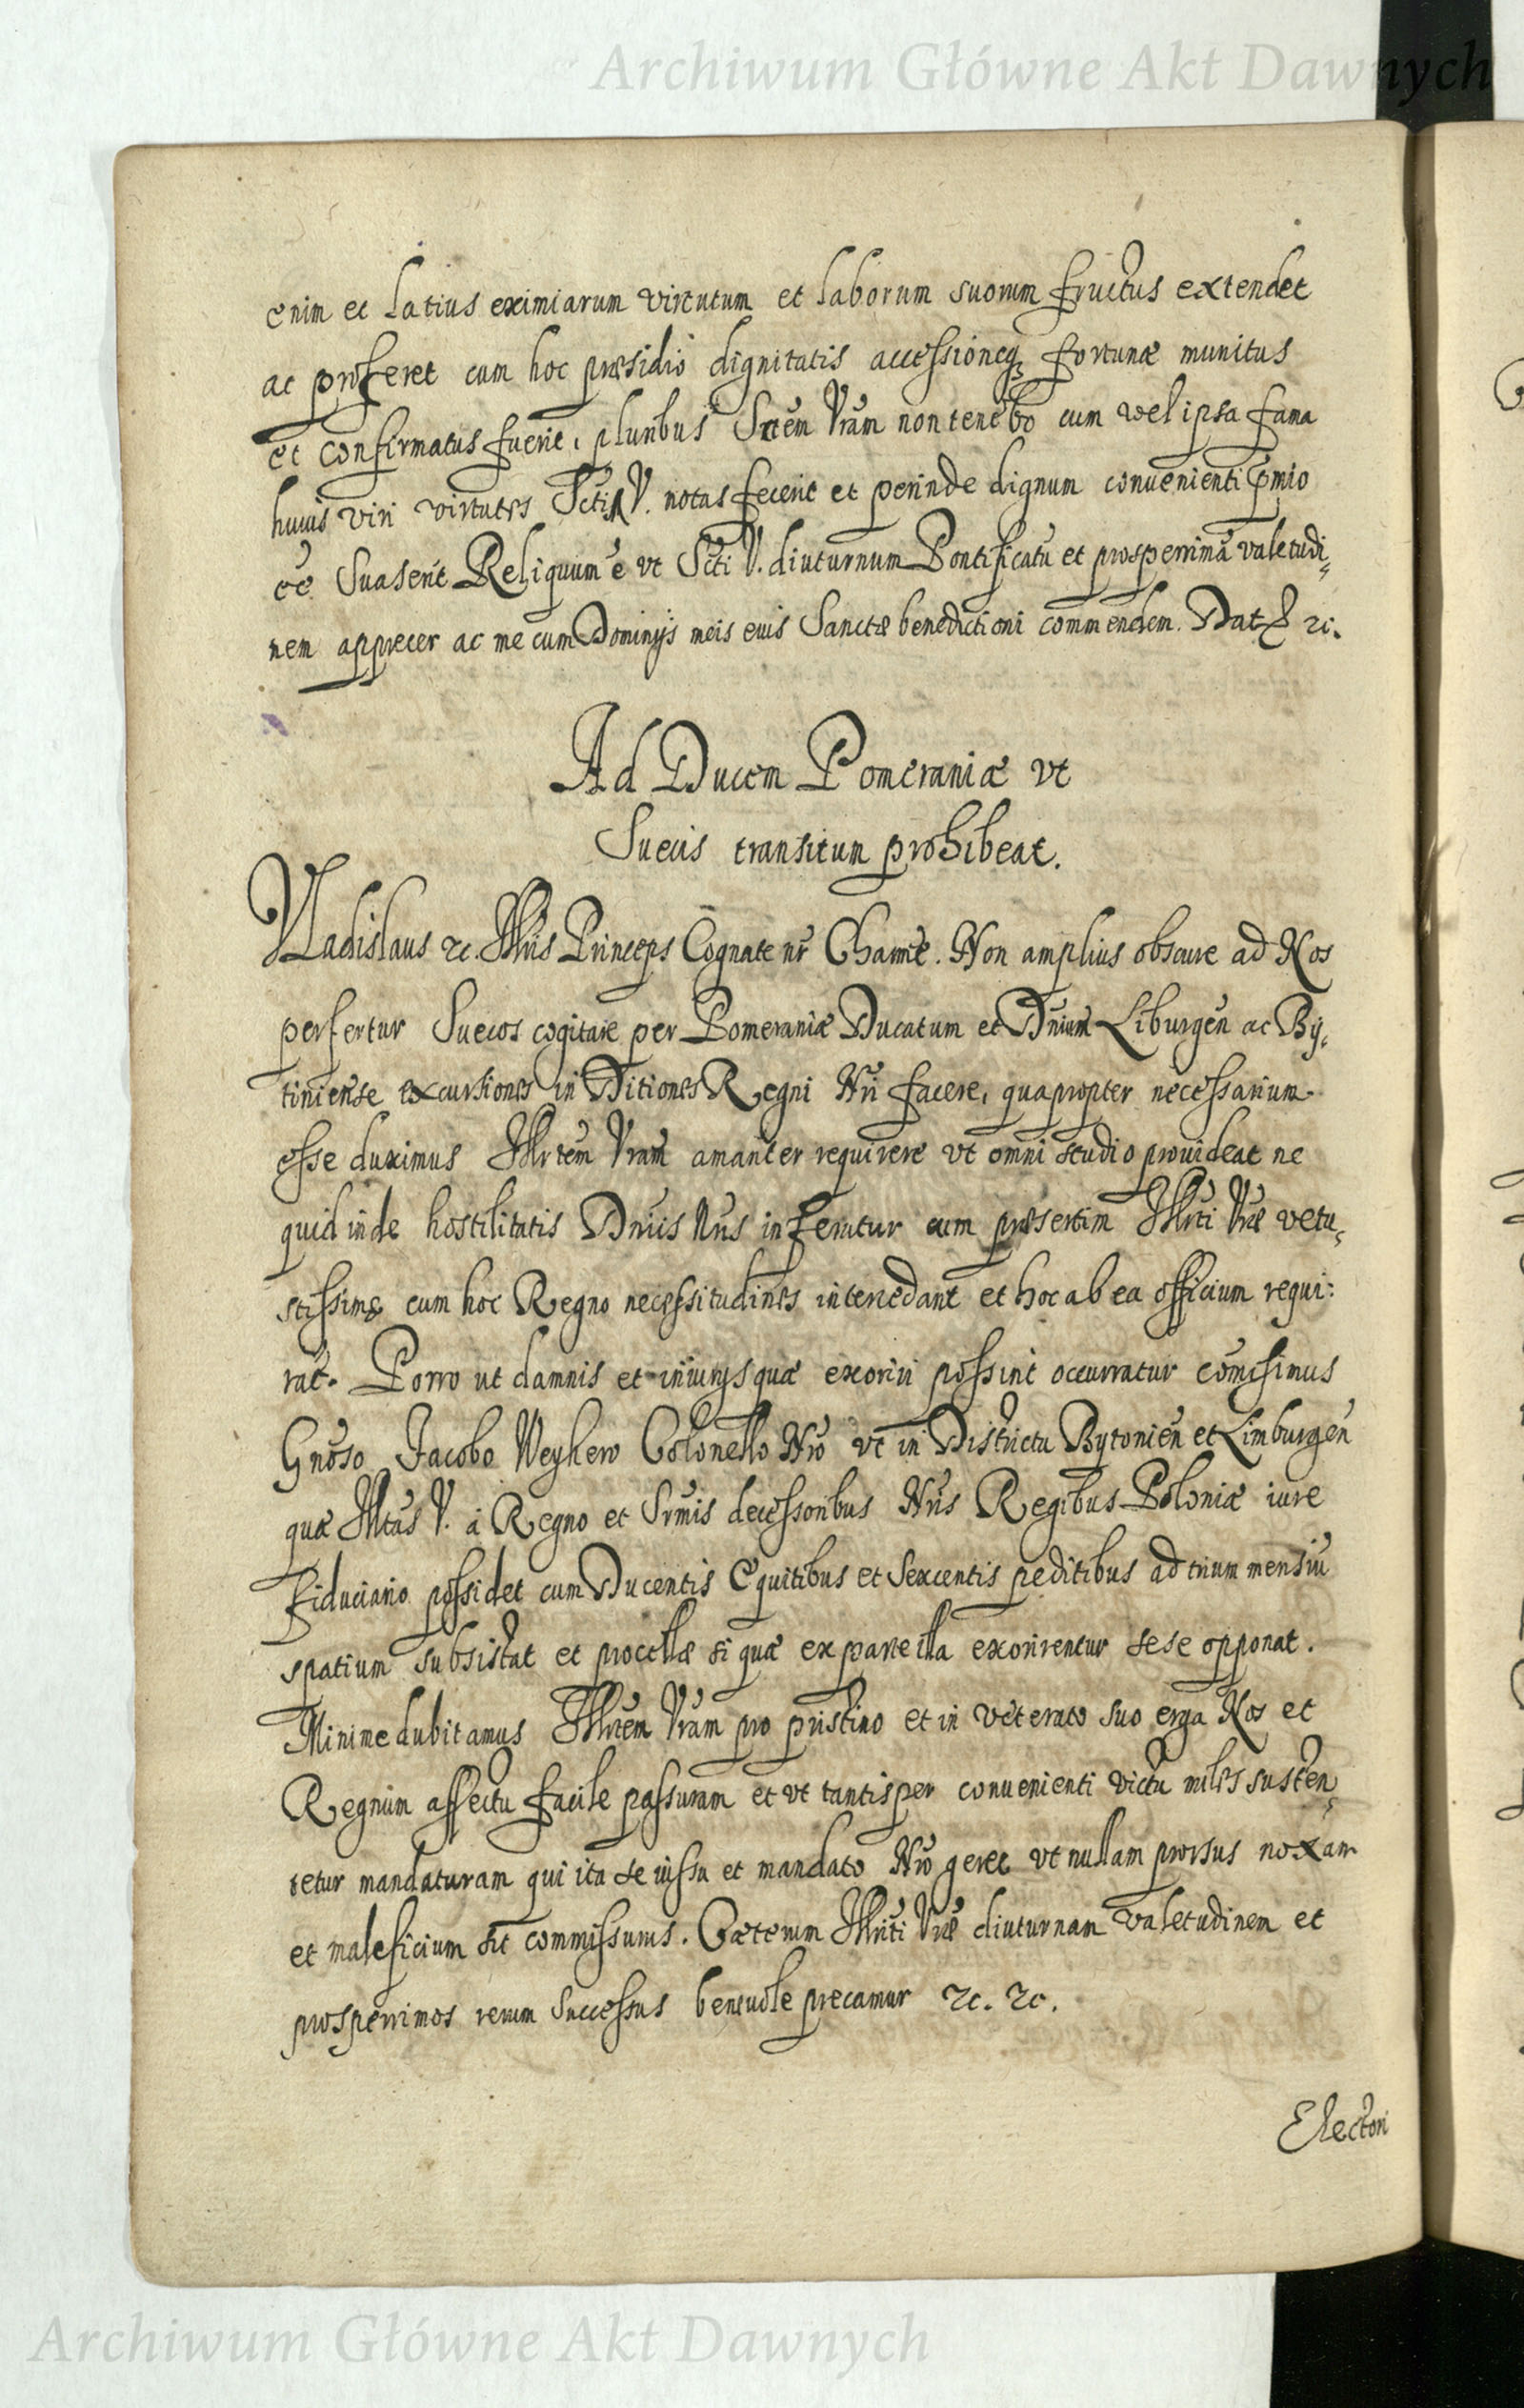 Archiwum Główne Akt Dawnych
enim et latius eximiarum virtutum et laborum suorum fructus extendet
ac proferet cum hoc præsidio dignitatis accessioneq; fortunæ munitus
et confirmatus fuerit, pluribus Sctem Vram non tenebo cum vel ipsa fama
huius viri virtutes Scti V. notas fecerit et perinde dignum convenienti pmio
ee suaserit Reliquum e vt Scti V. diuturnum Pontificatu et prosperrima valetudi,
nem apprecer ac me cum Dominijs meis eius Sanctæ benedictioni commendem. Dat &c.
Ad Ducem Pomeraniæ vt
Suecis transitum prohibeat.
Vladislaus &c. Illris Princeps Cognate nr Charme. Non amplius obscure ad Nos
perfertur Suecos cogitare per Pomeraniæ Ducatum et Dnium Liburgen ac By,
tiniense excursiones in Ditiones Regni Nri facere, quapropter necessarium
esse duximus Illrtem Vram amanter requirere vt omni studio prouideat ne
quid inde hostilitatis Dniis Nris inferatur cum præsertim Illrti Vræ vetu,
stissimæ cum hoc Regno necessitudines intercedant et hoc ab ea officium requi:
rat. Porro ut damnis et iniurijs quæ exoriri possint occurratur comisimus
Gnoso Jacobo Weyhero Colonello Nro vt in Districtu Bytonien et Limburgen
quæ Illtas V. a Regno et Srmis decessoribus Nris Regibus Poloniæ iure
fiduciario possidet cum Ducentis Equitibus et Sexcentis peditibus ad trium mensiu
spatium subsistat et procellæ si quæ ex parte illa exorirentur sese opponat.
Minime dubitamus Illrtem Vram pro pristino et in veterato suo erga Nos et
Regnum affectu facile passuram et vt tantisper convenienti victu miles susten,
tetur mandaturam qui ita se iussu et mandato Nro geret vt nullam prorsus noxam
et maleficium sit commissurus. Cæterum Illrti Vræ diuturnam valetudinem et
prosperrimos rerum successus beneuole precamur &c. &c.
Electori
Archiwum Główne Akt Dawnych